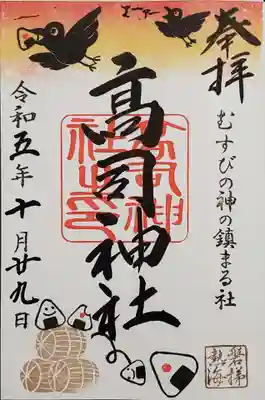 奉拝
むすびの神の鎮まる社
高司神社
令和五年十月廿九日
磐梯
熱海